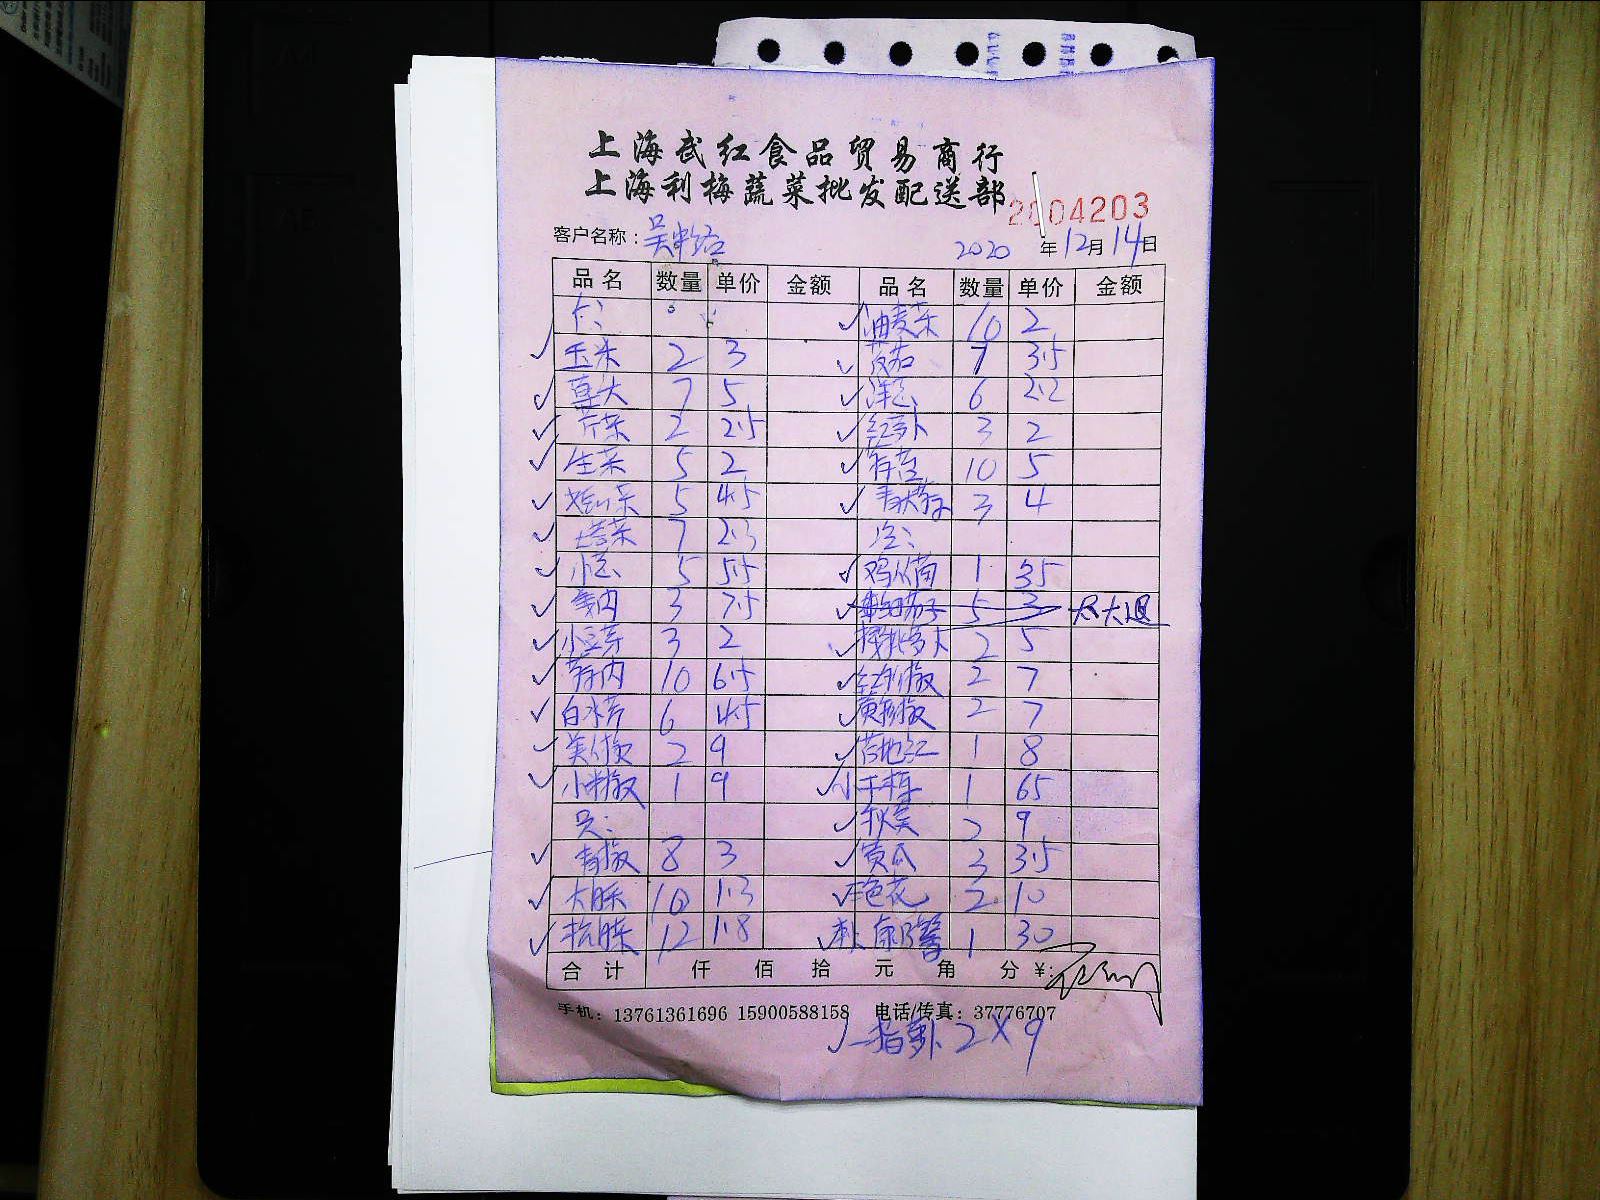 上海武红食品贸易商行
上海利梅蔬菜批发配送部
2004203
客户名称：吴
2020 年 12月 14日
品名 数量 单价 金额 品名 数量 单价 金额
油麦菜 10 2
玉米 2 3 茄 7 3.5
7 5 洋葱 6 2.2
芹菜 2 2.5 红萝卜 3 2
生菜 5 2 10 5
5 4.5 3 4
塔菜 7 2.3 冷：
小葱 5 5.5 1 35
3 7.5 茄子 5 3 太大退
小豆芽 3 2 樱桃萝卜 2 5
10 6.5 红彩椒 2 7
白水芹 6 4.5 黄彩椒 2 7
美人椒 2 9 1 8
小米椒 1 9 1 65
吴： 秋葵 2 9
青椒 8 3 黄瓜 3 3.5
大 10 1.3 三色花 2 10
12 1.8 1 30
合计 仟 佰 拾 元 角 分 ¥:
手机：13761361696 15900588158 电话/传真：37776707
指萝卜 2×9